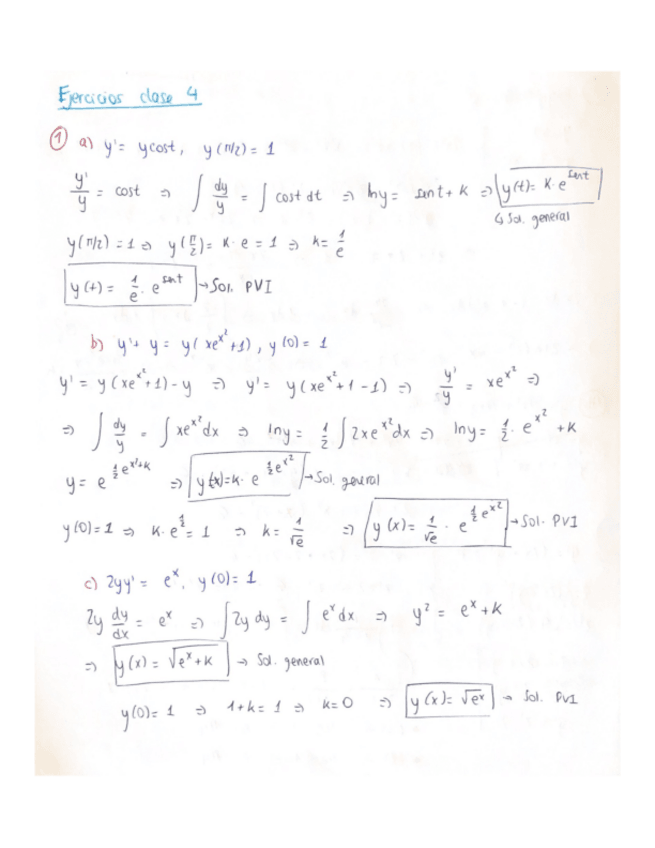 Ejercicios clase 4
① a) y' = y cost, y(π/2) = 1
y'/y = cost ⇒ ∫ dy/y = ∫ cost dt ⇒ lny = sint + k ⇒ y(t) = k·e^sint
↳ Sol. general
y(π/2) = 1 ⇒ y(π/2) = k·e = 1 ⇒ k = 1/e
y(t) = 1/e · e^sint → Sol. PVI
b) y' + y = y(xe^x² + 1), y(0) = 1
y' = y(xe^x² + 1) - y ⇒ y' = y(xe^x² + 1 - 1) ⇒ y'/y = xe^x² ⇒
⇒ ∫ dy/y = ∫ xe^x² dx ⇒ lny = 1/2 ∫ 2xe^x² dx ⇒ lny = 1/2 · e^x² + k
y = e^(1/2 e^x² + k) ⇒ y(x) = k·e^(1/2 e^x²) → Sol. general
y(0) = 1 ⇒ k·e^(1/2) = 1 ⇒ k = 1/√e ⇒ y(x) = 1/√e · e^(1/2 e^x²) → Sol. PVI
c) 2yy' = e^x, y(0) = 1
2y dy/dx = e^x ⇒ ∫ 2y dy = ∫ e^x dx ⇒ y² = e^x + k
⇒ y(x) = √(e^x + k) → Sol. general
y(0) = 1 ⇒ 1 + k = 1 ⇒ k = 0 ⇒ y(x) = √(e^x) → Sol. PVI